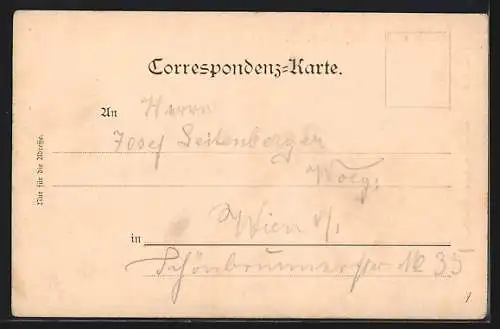 Correspondenz=Karte.
An Herrn
Josef Leitenberger
Wien V/1
in
Schönbrunnerstr № 35
Nur für die Adresse.